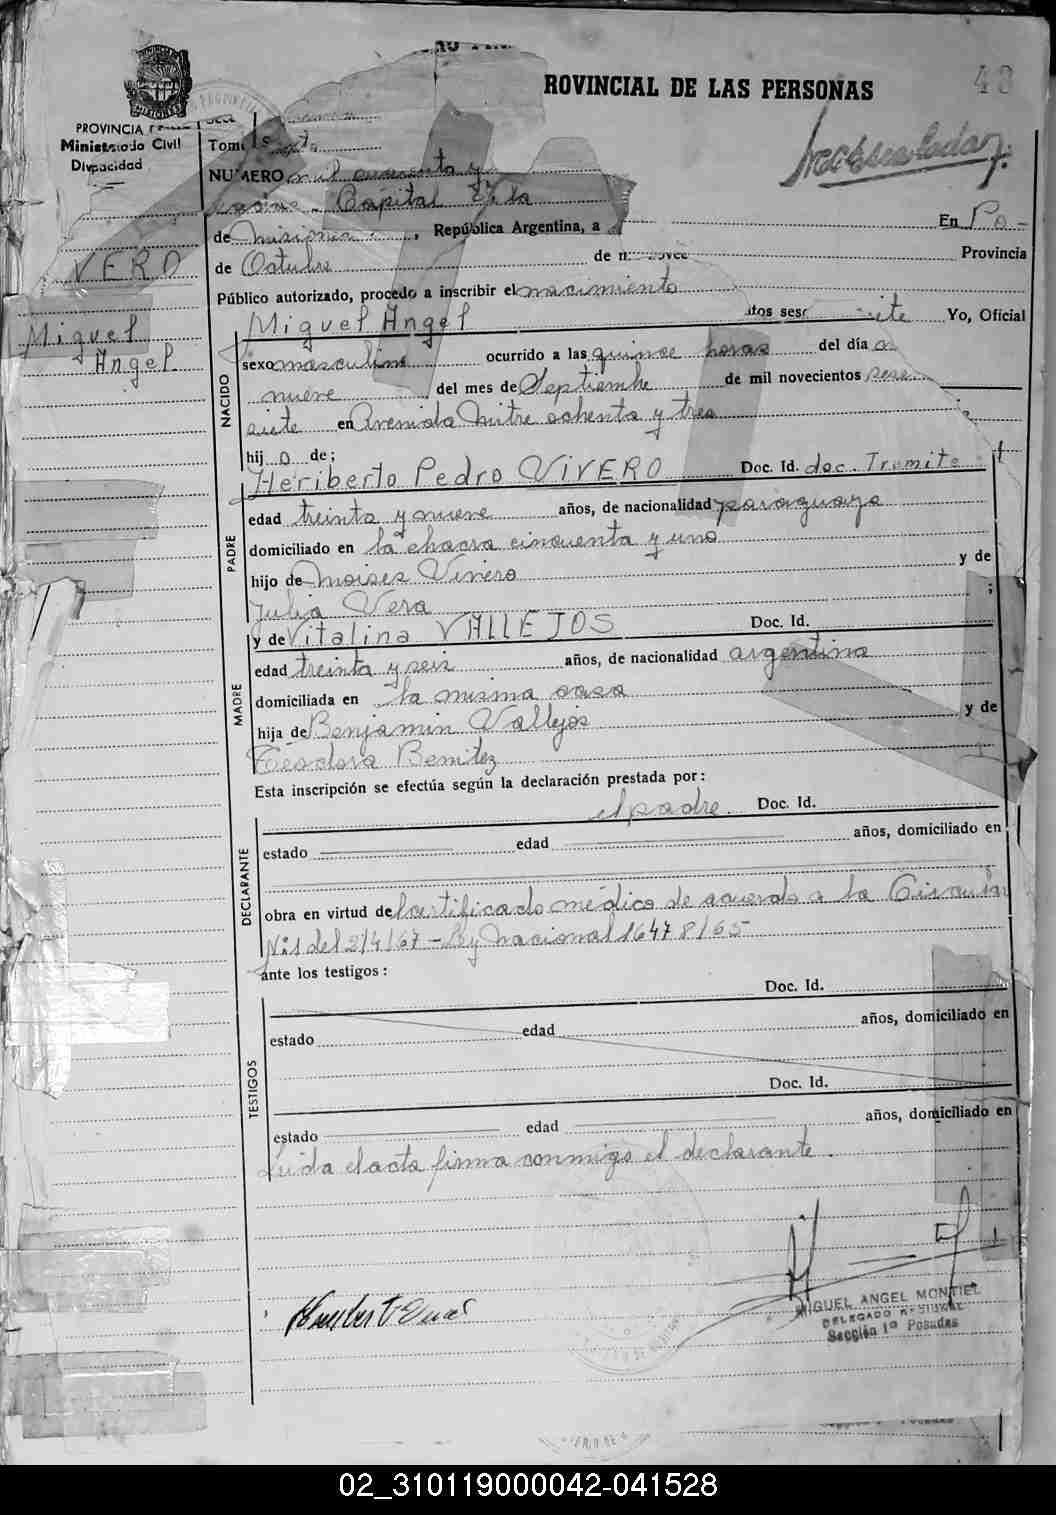 ROVINCIAL DE LAS PERSONAS
48
PROVINCIA
Ministerio Civil
Divpacidad
Tomo Sexto
NUMERO mil cuarenta y
Capital
de Misiones, República Argentina, a En Po-
de Octubre de Provincia
Público autorizado, procedo a inscribir el nacimiento
VERO
Miguel
Angel
Yo, Oficial
NACIDO
Miguel Angel
sexo masculino ocurrido a las quince horas del día
nueve del mes de Septiembre de mil novecientos sese
siete en Avenida Mitre ochenta y tres
hij o de;
PADRE
Heriberto Pedro VIVERO Doc. Id. doc. Tramite
edad treinta y nueve años, de nacionalidad paraguaya
domiciliado en la chacra cincuenta y uno
hijo de Moises Vivero y de
Julia Vera ;
MADRE
y de Vitalina VALLEJOS Doc. Id.
edad treinta y seis años, de nacionalidad argentina
domiciliada en la misma casa
hija de Benjamin Vallejos y de
Teodora Benitez
Esta inscripción se efectúa según la declaración prestada por:
el padre. Doc. Id.
DECLARANTE
estado edad años, domiciliado en
obra en virtud de Certificado médico de acuerdo a la Circular
Nº1 del 3/4/67 - Ley Nacional 16478/65
ante los testigos:
Doc. Id.
TESTIGOS
estado edad años, domiciliado en
Doc. Id.
estado edad años, domiciliado en
Leida el acta firma conmigo el declarante.
MIGUEL ANGEL MONTIEL
DELEGADO REGIONAL
Sección 1ª Posadas
02_310119000042-041528